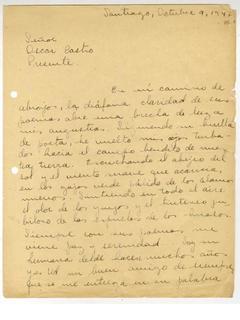 Santiago, Octubre 9, 194
Señor
Oscar Castro
Presente.
En mi camino de
abrojos, la diáfana claridad de sus
poemas abre una brecha de luz a
mis angustias. Siguiendo su huella
de poeta, he vuelto mis ojos turba-
dos hacia el campo bendito de nues-
tra tierra. Escuchando el abejeo del
sol y el viento suave que acaricia,
en los gajos verde pálido de los álamos
nuevos. Sintiendo en todo el aire
el olor de los quejos y el tintineo ju-
biloso de las espuelas de los
Siempre con sus poemas me
viene paz y serenidad. Soy su
hermana desde hace muchos años
y es Ud. un buen amigo de siempre
que se me entrega en su palabra